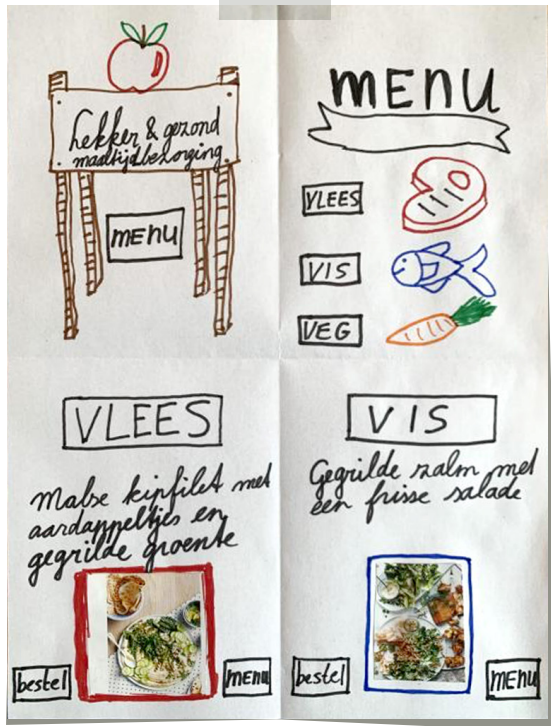 Lekker & gezond
maaltijdbezorging
menu
MENU
VLEES
VIS
VEG
VLEES
Malse kipfilet met
aardappeltjes en
gegrilde groente
bestel
MENU
VIS
Gegrilde zalm met
een frisse salade
bestel
MENU